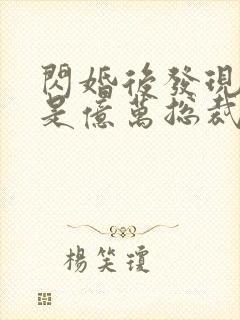 閃婚後發現
是億萬總裁
楊笑瓊